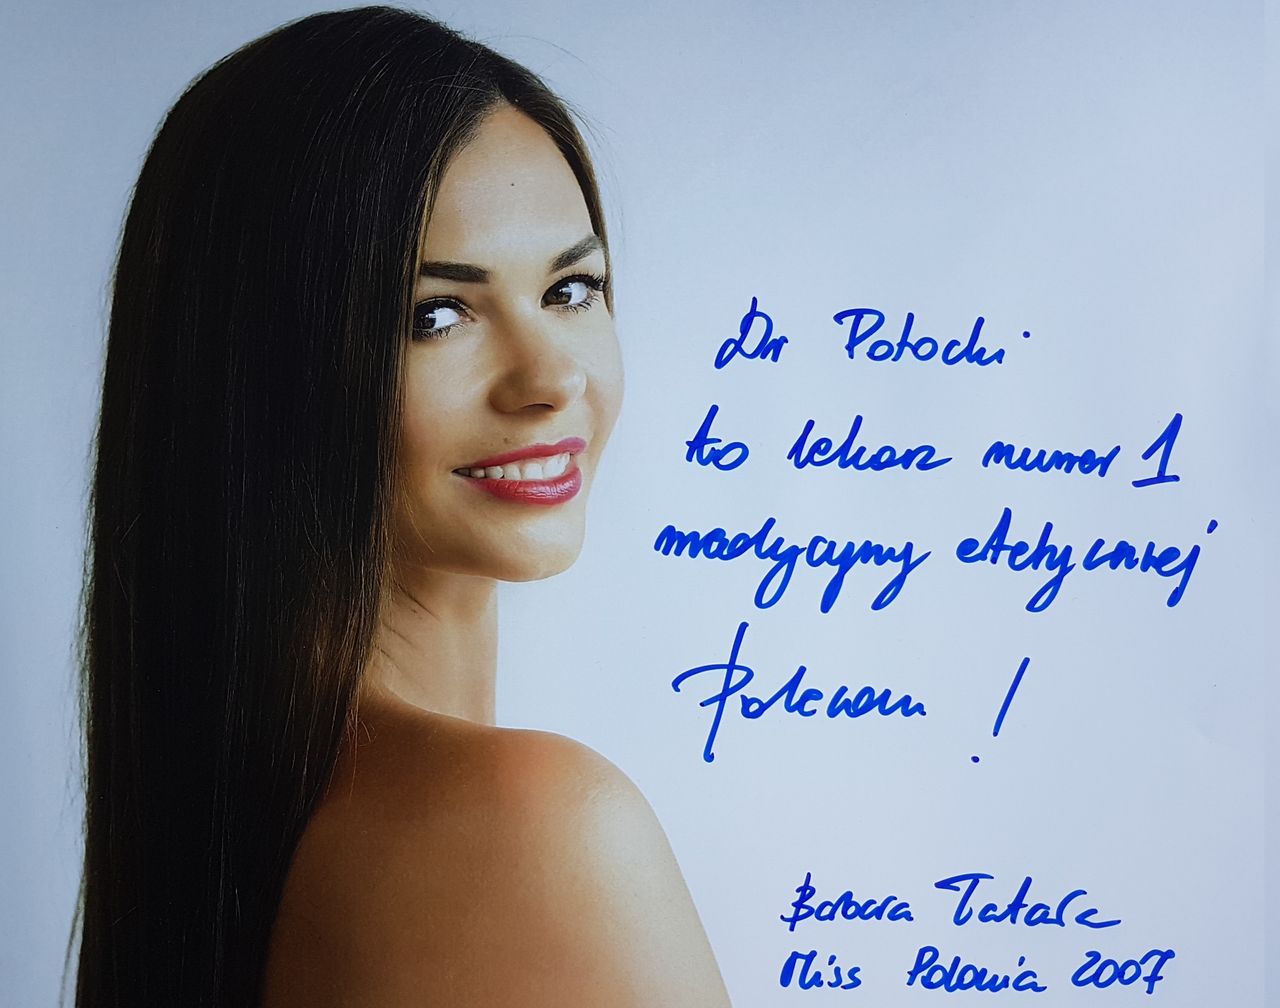 Dr Potocki
to lekarz numer 1
medycyny estetycznej
Polecam !
Barbara Tatara
Miss Polonia 2007